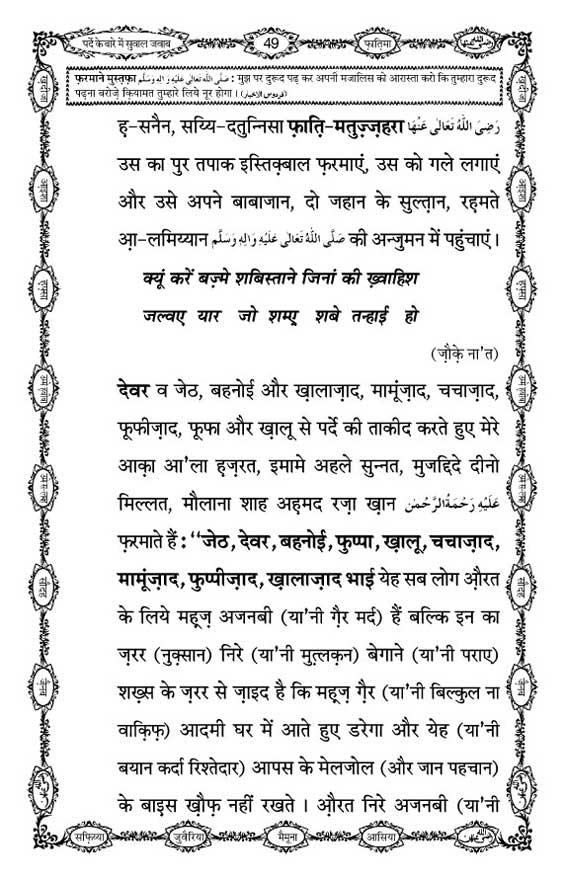 पर्दे के बारे में सुवाल जवाब
49
फ़ातिमा
फ़रमाने मुस्तफ़ा صَلَّى اللهُ تَعَالٰى عَلَيْهِ وَاٰلِهٖ وَسَلَّم : मुझ पर दुरूद पढ़ कर अपनी मजालिस को आरास्ता करो कि तुम्हारा दुरूद
पढ़ना बरोज़े क़ियामत तुम्हारे लिये नूर होगा । (فردوس الاخبار)
ह-सनैन, सय्यि-दतुन्निसा फ़ाति-मतुज़्ज़हरा رَضِیَ اللّٰهُ تَعَالٰی عَنْهَا
उस का पुर तपाक इस्तिक़्बाल फ़रमाएं, उस को गले लगाएं
और उसे अपने बाबाजान, दो जहान के सुल्तान, रहमते
आ़-लमिय्यान صَلَّی اللّٰهُ تَعَالٰی عَلَیْهِ وَاٰلِهٖ وَسَلَّم की अन्जुमन में पहुंचाएं ।
क्यूं करें बज़्मे शबिस्ताने जिनां की ख़्वाहिश
जल्वए यार जो शम्ए़ शबे तन्हाई हो
(ज़ौक़े ना'त)
देवर व जेठ, बहनोई और ख़ालाज़ाद, मामूंज़ाद, चचाज़ाद,
फूफीज़ाद, फूफा और ख़ालू से पर्दे की ताकीद करते हुए मेरे
आक़ा आ'ला हज़रत, इमामे अहले सुन्नत, मुजद्दिदे दीनो
मिल्लत, मौलाना शाह अह़मद रज़ा ख़ान عَلَیْهِ رَحْمَةُ الرَّحْمٰن
फ़रमाते हैं : “जेठ, देवर, बहनोई, फुप्पा, ख़ालू, चचाज़ाद,
मामूंज़ाद, फुप्पीज़ाद, ख़ालाज़ाद भाई येह सब लोग औ़रत
के लिये महूज़ अजनबी (या'नी ग़ैर मर्द) हैं बल्कि इन का
ज़रर (नुक़्सान) निरे (या'नी मुत़्लक़न) बेगाने (या'नी पराए)
शख़्स के ज़रर से ज़ाइद है कि महूज़ ग़ैर (या'नी बिल्कुल ना
वाक़िफ़) आदमी घर में आते हुए डरेगा और येह (या'नी
बयान कर्दा रिश्तेदार) आपस के मेलजोल (और जान पहचान)
के बाइस ख़ौफ़ नहीं रखते । औ़रत निरे अजनबी (या'नी
सफ़िय्या
जुवैरिया
मैमूना
आसिया